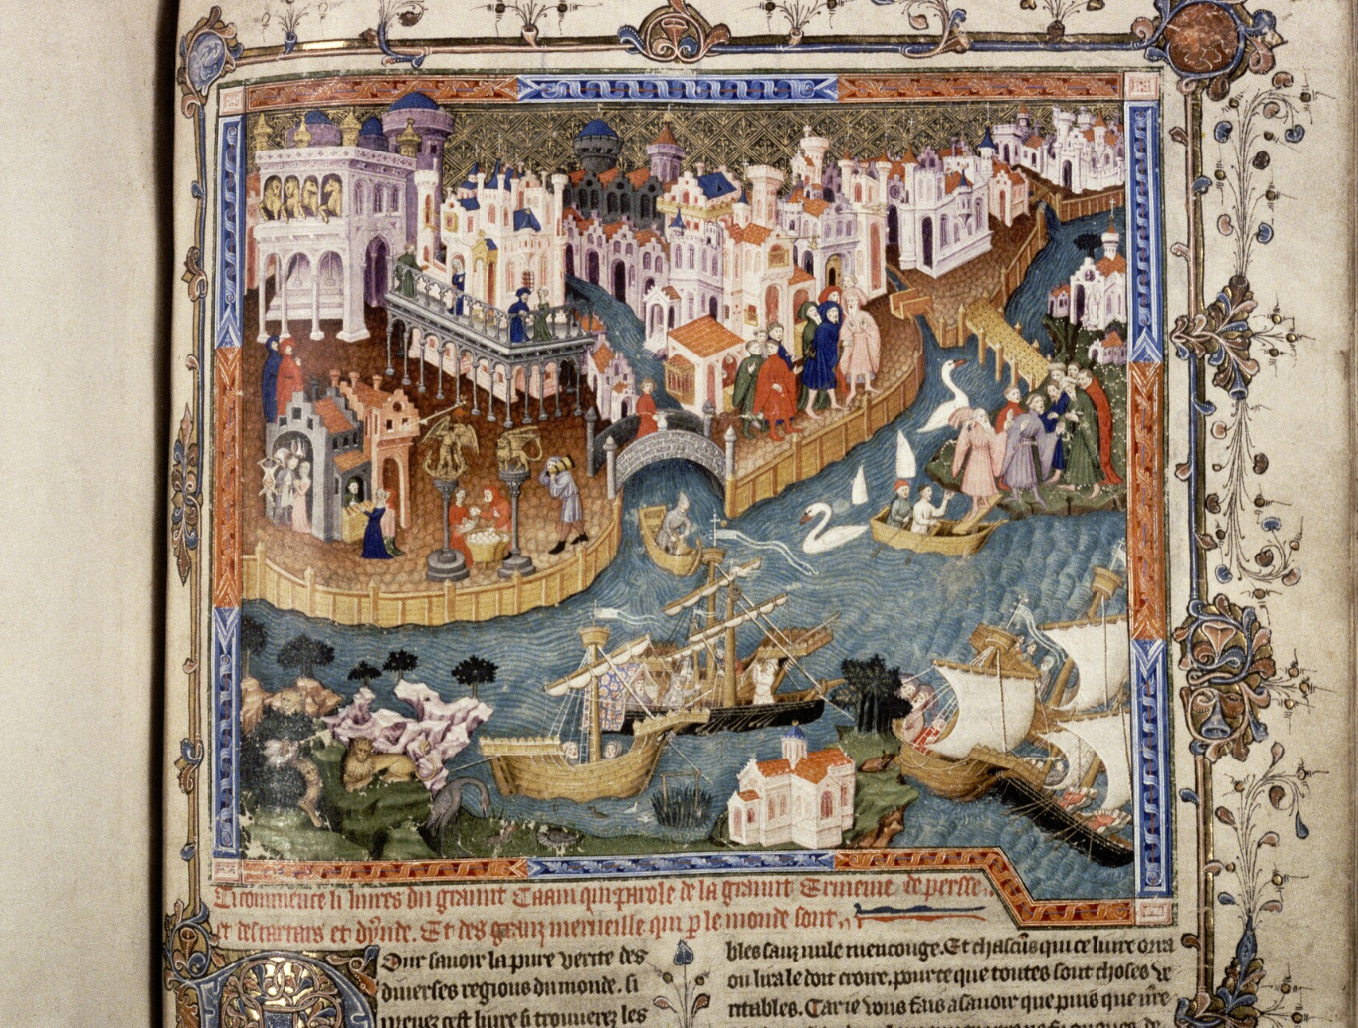 Ci commence li liures du graunt Caam qui parole de la graunt Ermenie de persse.
et des tartars et dynde. Et des granz merueille qui p le monde sont
Our sauoir la pure verite des
diuerses regions du monde. si
prenez cest liure si trouuerez les
bles sanz nule mencouge. Et chascuns qui ce liure orra
ou lira le doit croire. pource que toutes sont choses ve
ritables. Car ie vous fais a sauoir que puis que nre